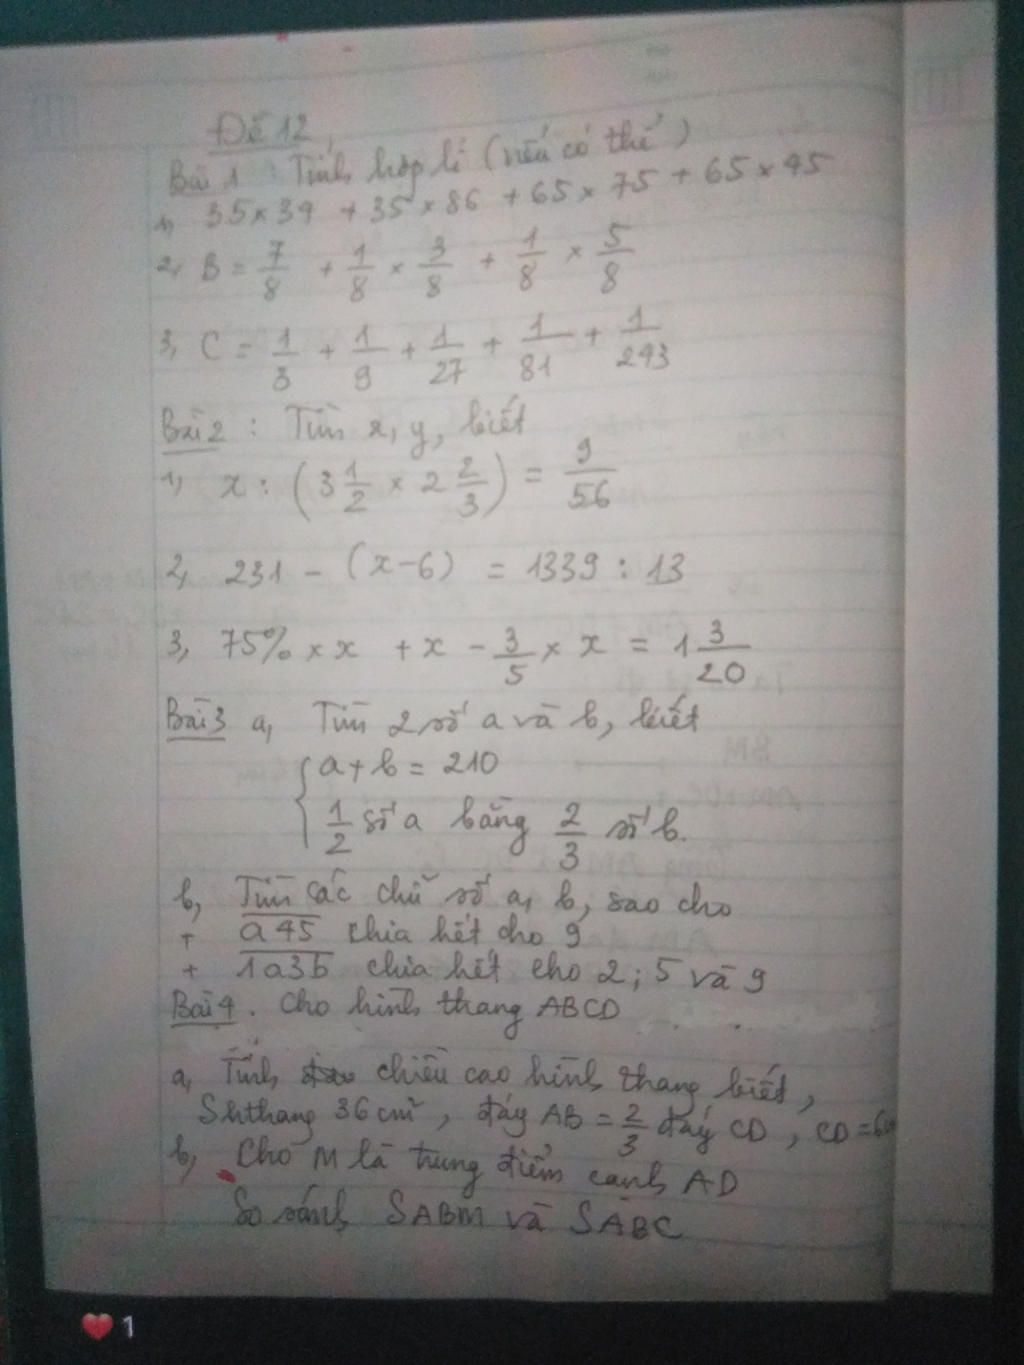 Đề 12
Bài 1 : Tính hợp lí (nếu có thể)
1, 35 × 34 + 35 × 86 + 65 × 75 + 65 × 45
2, B = 7/8 + 1/8 × 3/8 + 1/8 × 5/8
3, C = 1/3 + 1/9 + 1/27 + 1/81 + 1/243
Bài 2 : Tìm x, y, biết
1, x : (3 1/2 × 2 2/3) = 9/56
2, 231 - (x - 6) = 1339 : 13
3, 75% × x + x - 3/5 × x = 1 3/20
Bài 3 a, Tìm 2 số a và b, biết
a + b = 210
1/2 số a bằng 2/3 số b.
b, Tìm các chữ số a, b, sao cho
+ a45 chia hết cho 9
+ 1a3b chia hết cho 2 ; 5 và 9
Bài 4 . Cho hình thang ABCD
a, Tính chiều cao hình thang biết,
Shthang 36 cm², đáy AB = 2/3 đáy CD , CD = 6
b, Cho M là trung điểm cạnh AD
So sánh SABM và SABC
1